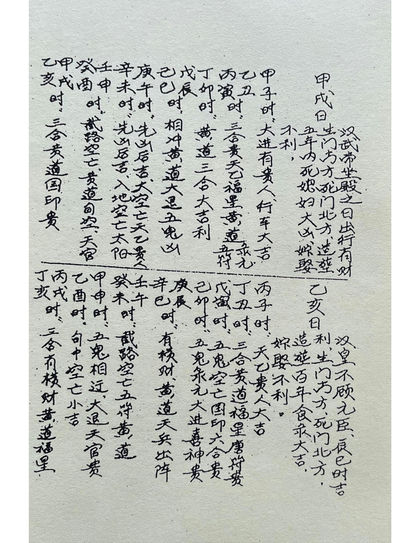 甲戌日
汉武帝坐殿之日出行有财
生门南方死门北方造葬
五年内死媳妇大凶嫁娶
不利,
甲子时,大进有贵人行车大吉
乙丑时,
丙寅时,三合贵天乙福星黄道禄元五符
丁卯时,黄道三合大吉利
戊辰
己巳时,相冲黄道大退五鬼凶
庚午时,先凶后吉大空亡天乙贵人
辛未时,先凶后吉入地空亡太阳
壬申
癸酉时,截路空亡黄道旬空天官
甲戌时,
乙亥时,三合黄道国印贵
乙亥日
汉皇不顾元臣,辰巳时吉
利生门南方,死门北方,
造葬百年食禄大吉,
嫁娶不利。
丙子时,天乙贵人大吉
丁丑时,三合黄道福星唐符贵
戊寅时,五鬼空亡国印六合贵
己卯时,五鬼禄元大进喜神贵
庚辰
辛巳时,有横财黄道天兵出阵
壬午
癸未时,截路空亡五符黄道
甲申时,五鬼相近,大退天官贵
乙酉时,旬中空亡小吉
丙戌时,
丁亥时,三合有横财黄道福星